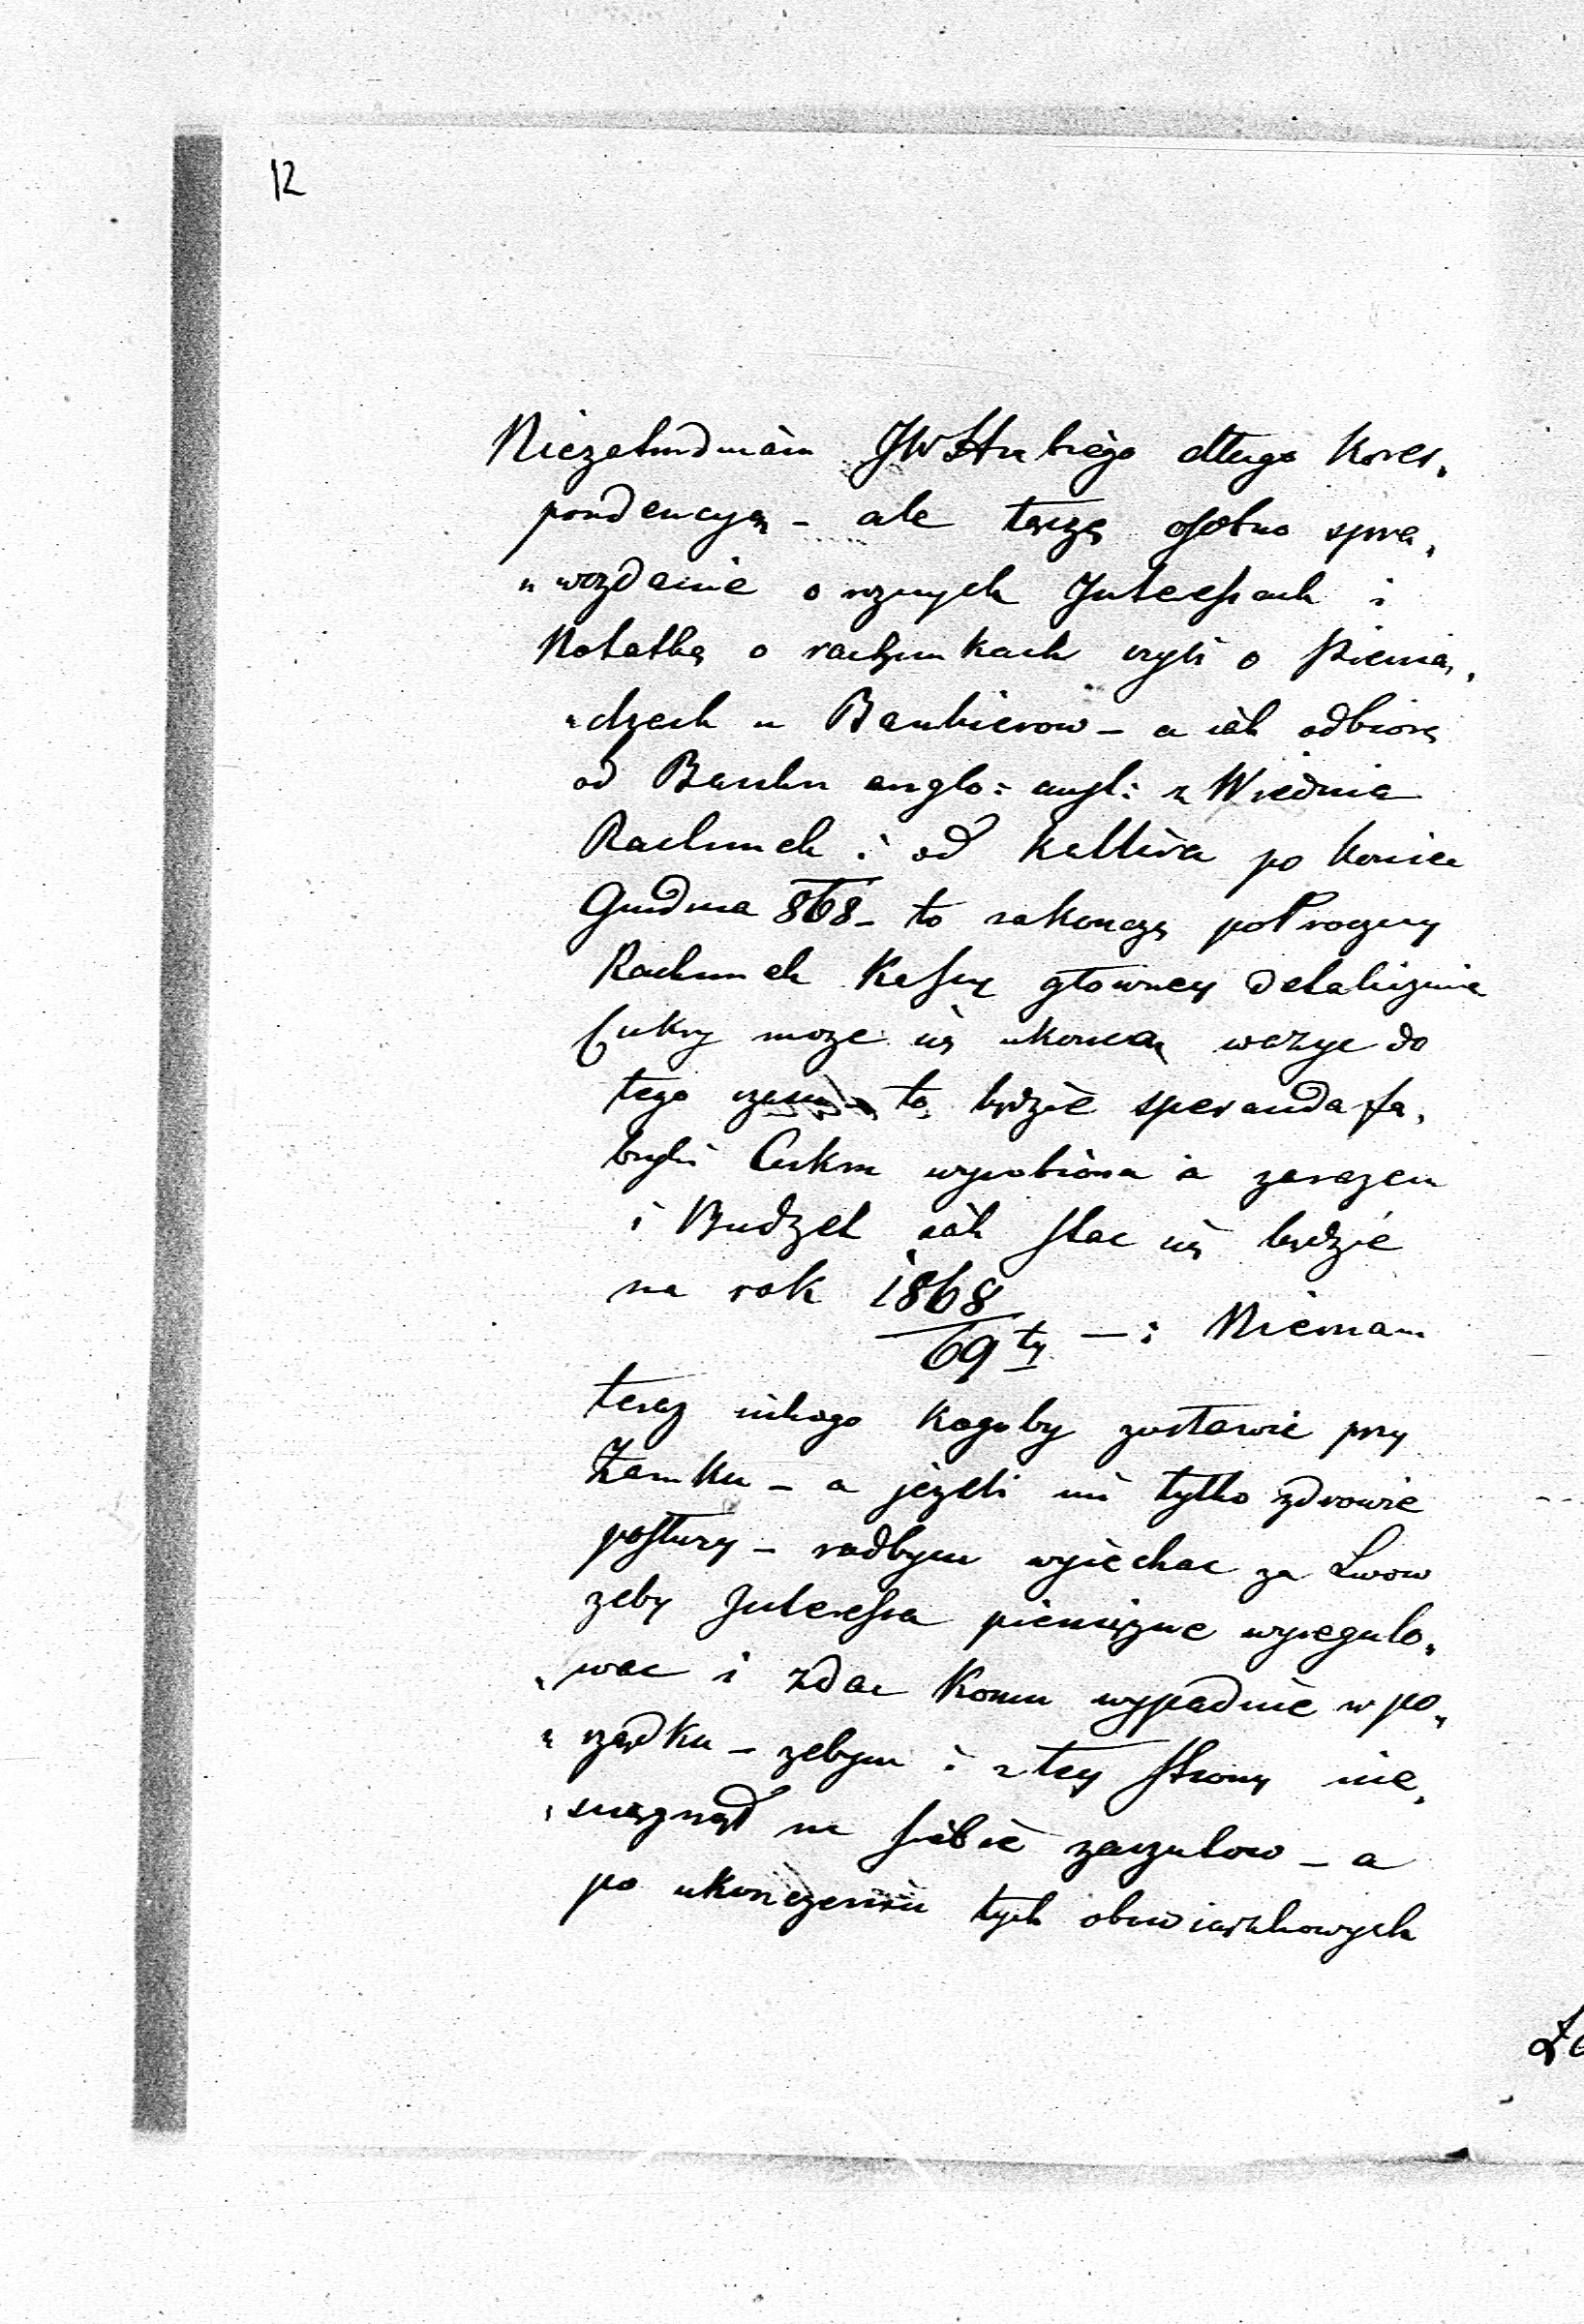 12
Niezatrudniam JW Hrabiego długo kores„
pondencyą – ale łączę osobno spra„
„wozdanie o roznych Interessach i
Notatkę o rachunkach czyli o Pienią„
„dzach u Bankierow – a iak odbiorę
od Banku anglo: z Wiednia
Rachunek i od po koniec
Grudnia 868 – to zakonczę połroczny
Rachunek Kassy głowney
Cukry moze się wazyc do
tego czasu to będzie speranda fa„
bryki Cukru wyrobiona a zarazem
i Budzet iak stac się będzie
na rok 1868
69 ty — : Niemam
teraz nikogo kogoby zostawic przy
Zamku – a jeżeli mi tylko zdrowie
posłuzy – radbym wyiechac za Lwow
zeby Interessa pieniężne wyregulo„
„wac i zdac komu wypadnie w po„
„rządku – zebym i z tey strony nie„
„sciągnął na siebie zarzutow – a
po ukonczeniu tych obowiązkowych